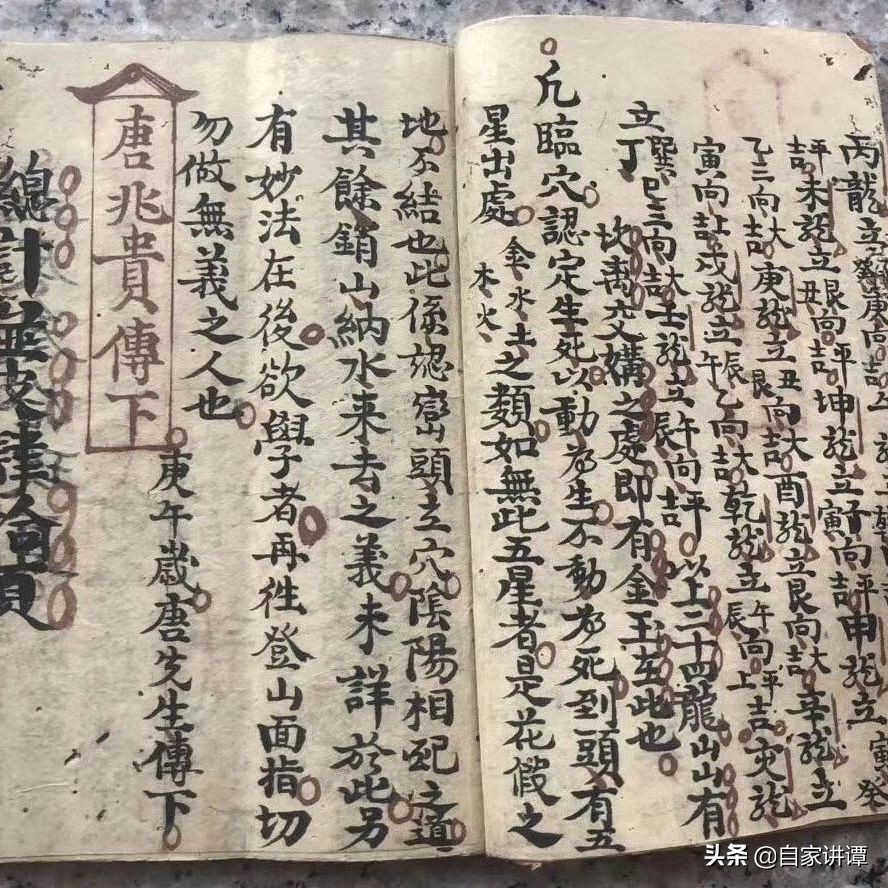 丙龍立癸庚向吉
平吉未龍立丑艮向平吉坤龍立寅向平吉申龍立寅癸
乙三向大吉庚龍立艮丑向大吉酉龍立艮向大吉辛龍立
寅向吉戌龍立午辰乙向大吉乾龍立辰午向平上吉亥龍
立巽巳三向大吉壬龍立辰午向平吉以上二十四龍山山有
丁坎离交媾之處即有金玉在此也
凡臨穴認定生死以動為生不動為死到頭有五
星出處金水木火土之類如無此五星者是花假之
地不結也此係認巒頭立穴陰陽相配之道
其餘銷山納水来去之義未詳於此另
有妙法在後欲學者再徃登山面指切
勿做無義之人也
庚午歲唐先生傳下
唐兆貴傳下
總計
頁
头条 @自家讲谭